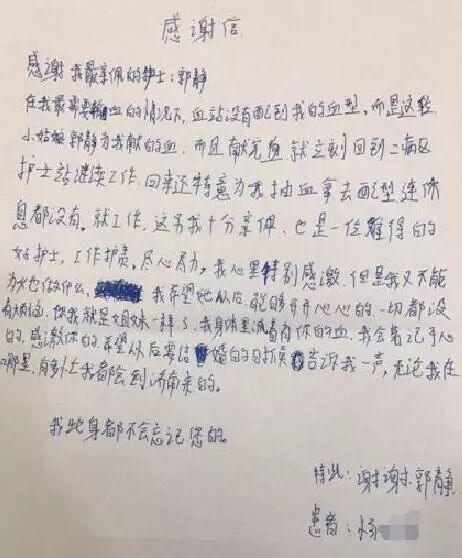 感谢信
感谢我最亲佩的护士：郭静
在我最需要输血的情况下，血站没有配到我的血型，而是这轻
小姑娘郭静为我献的血，而且献完血就立刻回到二病区
护士站继续工作，回来还特意为我抽血拿去配型连休
息都没有，就工作，这另我十分亲佩，也是一位难得的
好护士，工作护责，尽心尽力，我心里特别感激，但是我又不能
为她做什么，我希望她以后能够开开心心的，一切都没
有烦恼，你我就是姐妹一样了，我身体里流着有你的血，我会牢记于心
的，感激你的希望以后要结婚的时候告诉我一声，无论我在
哪里，有多忙我都会到济南来的。
我此身都不会忘记您的。
特此：谢谢郭静
患者：杨